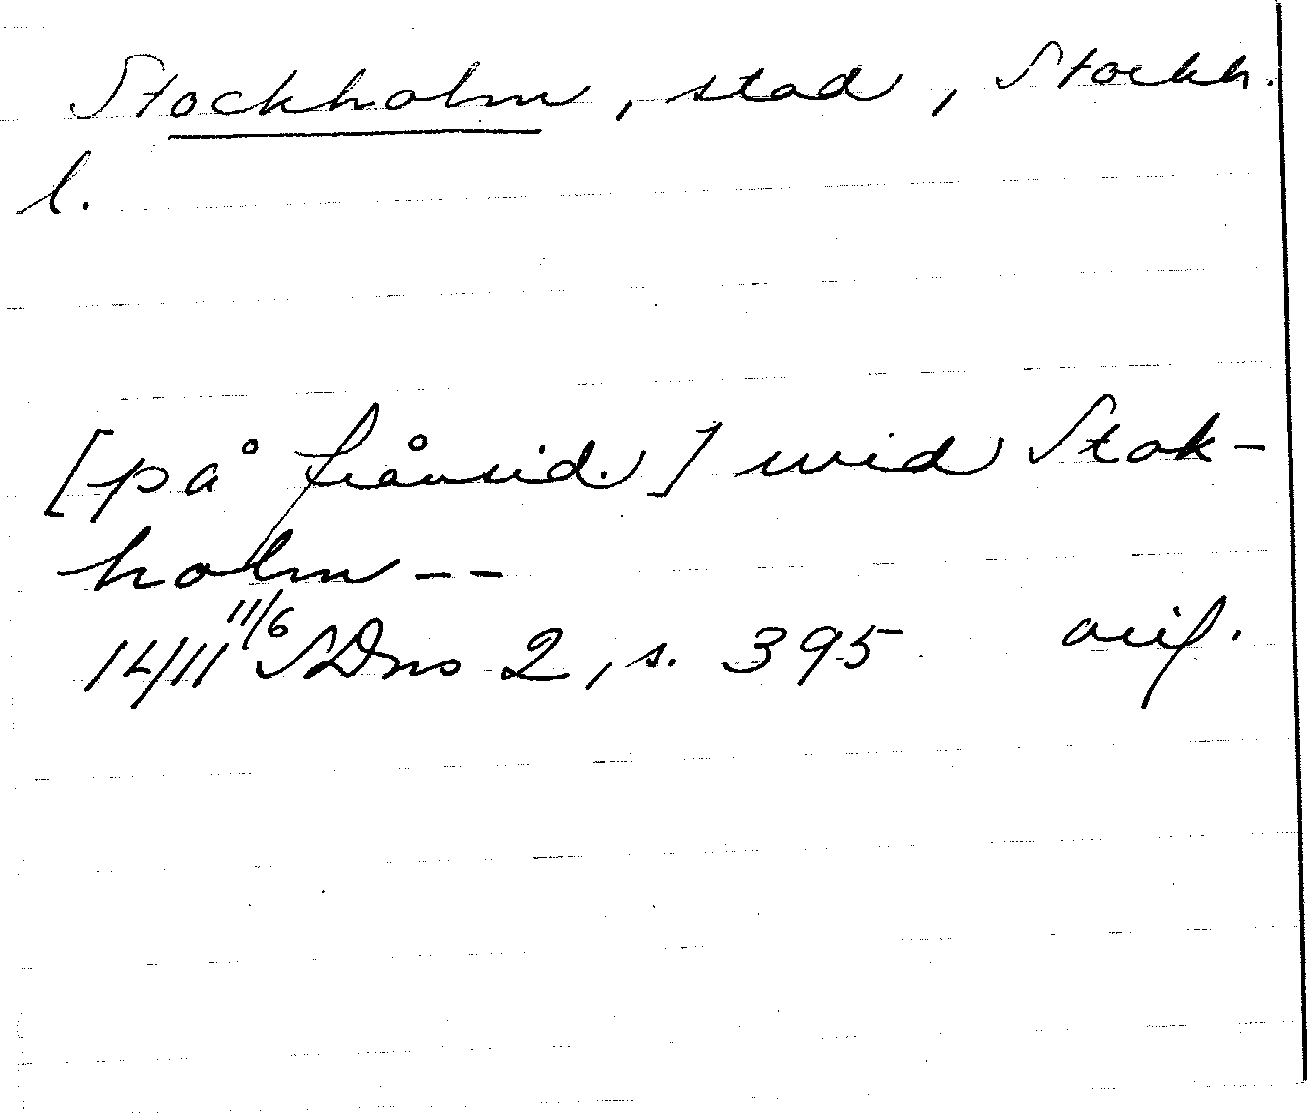 Stockholm, stad, Stockh.
l.
[på frånsid.] wid Stok-
holm --
1411 11/6 SDns 2, s. 395 avs.